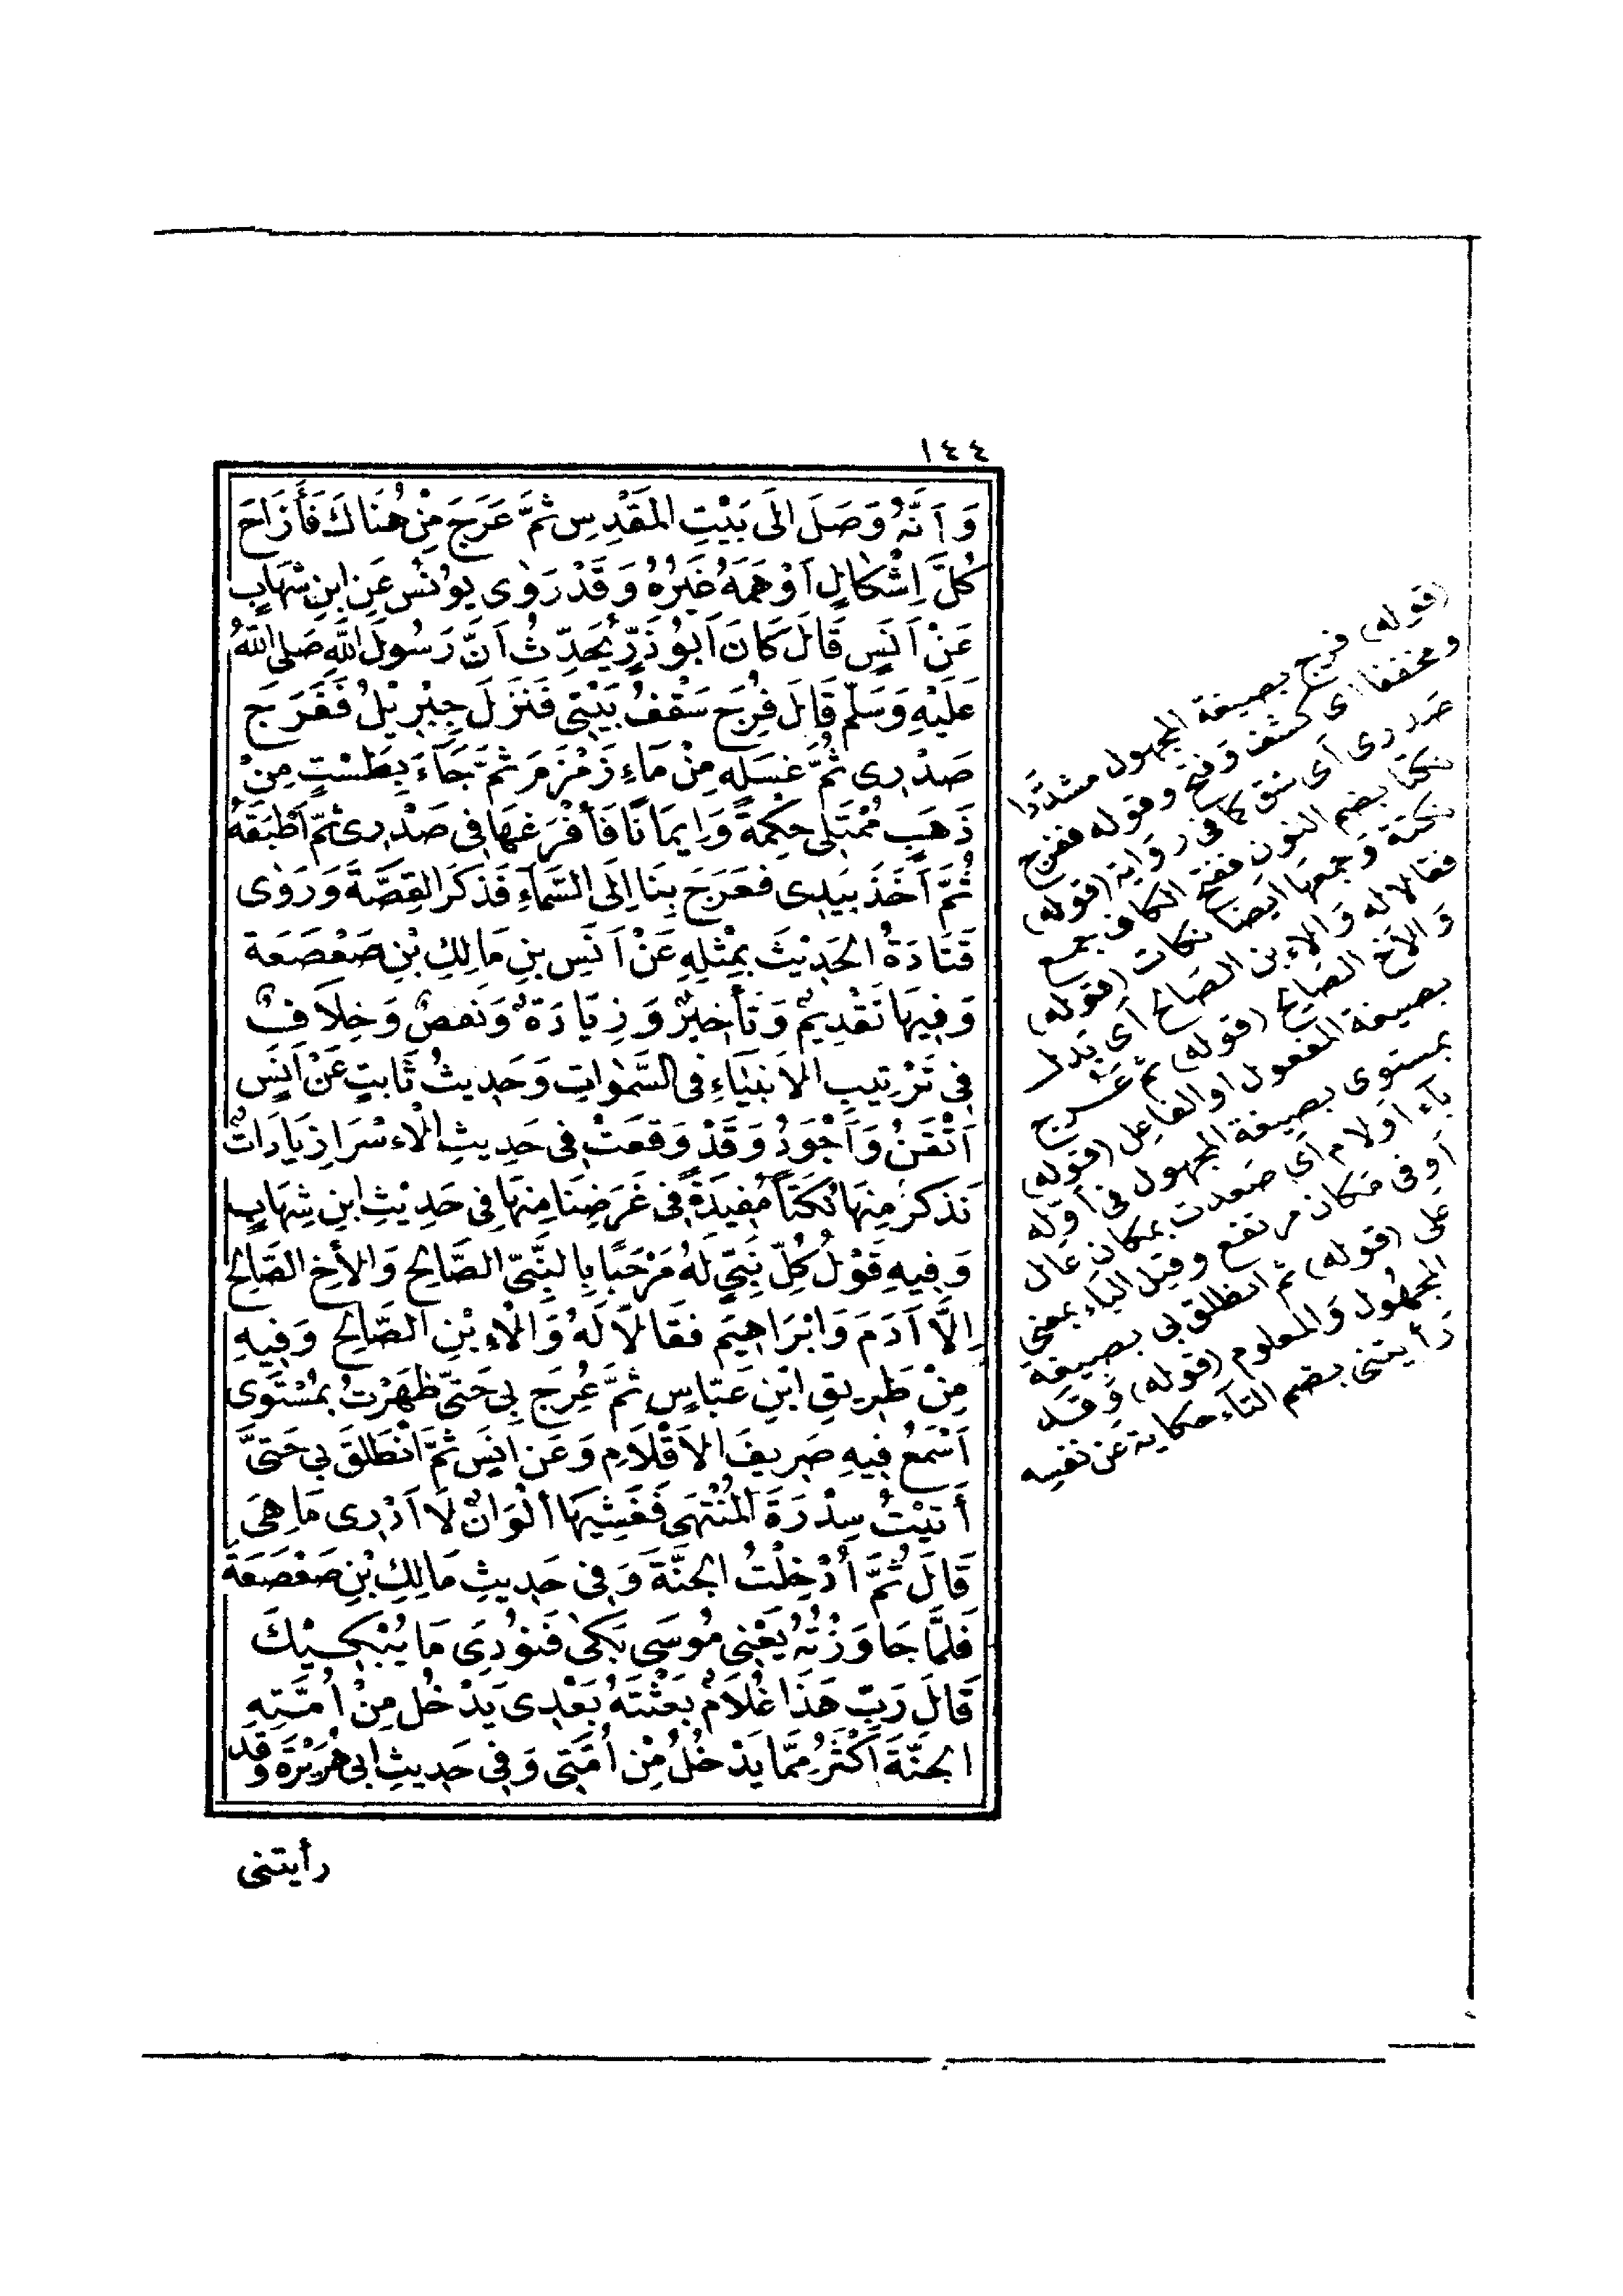 ١٤٤
وَاَنَّهُ وَصَلَ اِلَى بَيْتِ الْمَقْدِسِ ثُمَّ عَرَجَ مِنْ هُنَاكَ فَأَزَاحَ
كُلَّ اِشْكَالٍ اَوْهَمَهُ غَيْرُهُ وَقَدْ رَوٰى يُوْنُسُ عَنِ ابْنِ شِهَابٍ
عَنْ اَنَسٍ قَالَ كَانَ اَبُو ذَرٍّ يُحَدِّثُ اَنَّ رَسُولَ اللّٰهِ صَلَّى اللّٰهُ
عَلَيْهِ وَسَلَّمَ قَالَ فُرِجَ سَقْفُ بَيْتِى فَنَزَلَ جِبْرِيْلُ فَفَرَجَ
صَدْرِى ثُمَّ غَسَلَهِ مِنْ مَاءِ زَمْزَمَ ثُمَّ جَاءَ بِطَسْتٍ مِنْ
ذَهَبٍ مُمْتَلِى حِكْمَةً وَاِيمَانًا فَأَفْرَغَهَا فِى صَدْرِى ثُمَّ اَطْبَقَهُ
ثُمَّ اَخَذَ بِيَدِى فَعَرَجَ بِنَا اِلَى السَّمَاءِ فَذَكَرَ الْقِصَّةَ وَرَوٰى
قَتَادَةُ الْحَدِيْثَ بِمِثْلِهِ عَنْ اَنَسِ بْنِ مَالِكِ بْنِ صَعْصَعَةَ
وَفِيهَا تَقْدِيمٌ وَتَأْخِيرٌ وَزِيَادَةٌ وَنَقْصٌ وَخِلَافٌ
فِى تَرْتِيبِ الْاَنْبِيَاءِ فِى السَّمٰوَاتِ وَحَدِيثُ ثَابِتٍ عَنْ اَنَسٍ
اَتْقَنُ وَاَجْوَدُ وَقَدْ وَقَعَتْ فِى حَدِيثِ الْاِسْرَا زِيَادَاتٌ
نَذْكُرُ مِنْهَا نُكَتًا مُفِيدَةً فِى غَرَضِنَا مِنْهَا فِى حَدِيْثِ ابْنِ شِهَابٍ
وَفِيهِ قَوْلُ كُلِّ نَبِىٍّ لَهُ مَرْحَبًا بِالنَّبِىِّ الصَّالِحِ وَالْأَخِ الصَّالِحِ
اِلَّا آدَمَ وَاِبْرَاهِيمَ فَقَالَا لَهُ وَالْاِبْنِ الصَّالِحِ وَفِيهِ
مِنْ طَرِيقِ ابْنِ عَبَّاسٍ ثُمَّ عُرِجَ بِى حَتّٰى ظَهَرْتُ بِمُسْتَوًى
اَسْمَعُ فِيهِ صَرِيفَ الْاَقْلَامِ وَعَنْ اَنَسٍ ثُمَّ انْطَلَقَ بِى حَتَّى
أَتَيْتُ سِدْرَةَ الْمُنْتَهَى فَغَشِيَهَا أَلْوَانٌ لَا اَدْرِى مَا هِىَ
قَالَ ثُمَّ اُدْخِلْتُ الْجَنَّةَ وَفِى حَدِيثِ مَالِكِ بْنِ صَعْصَعَةَ
فَلَمَّا جَاوَزْتُهُ يَعْنِى مُوسَى بَكٰى فَنُودِىَ مَا يُبْكِيْكَ
قَالَ رَبِّ هَذَا غُلَامٌ بَعَثْتَهُ بَعْدِى يَدْخُلُ مِنْ اُمَّتِهِ
الْجَنَّةَ اَكْثَرُ مِمَّا يَدْخُلُ مِنْ اُمَّتِى وَفِى حَدِيثِ اَبِى هُرَيْرَةَ وَقَد
رأيتنى
(قوله) فرج بصيغة المجهول مشدّدا
ومخففا اى كشف وفتح وقوله ففرج
صدرى أى شق كما فى رواية (قوله)
نكتا بضم النون ففتح الكاف جمع
نكتة وجمعها ايضا نكات (قوله)
فقالا له والابن الصالح أى بدل
والاخ الصالح (قوله) ثم عرج
بصيغة المفعول او الفاعل (قوله)
بمستوى بصيغة المجهول فى اوّله
باء او لام أى صعدت بمكان عال
أو فى مكان مرتفع وقيل الباء بمعنى
على (قوله) ثم انطلق بى بصيغة
المجهول والمعلوم (قوله) وقد
رأيتنى بضم التاء حكاية عن نفسه